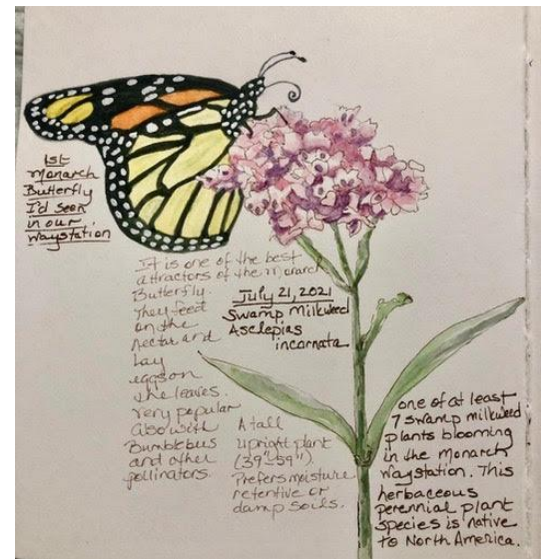 1st
Monarch
Butterfly
I'd seen
in our
waystation
It is one of the best
attractors of the monarch
Butterfly.
They feed
on the
nectar and
lay
eggs on
the leaves.
Very popular
also with
Bumblebees
and other
pollinators.
July 21, 2021
Swamp Milkweed
Asclepias
incarnata
A tall
Upright plant
(39"-59")
Prefers moisture
retentive or
damp soils.
one of at least
7 swamp milkweed
plants blooming
in the Monarch
Waystation. This
herbaceous
perennial plant
species is native
to North America.